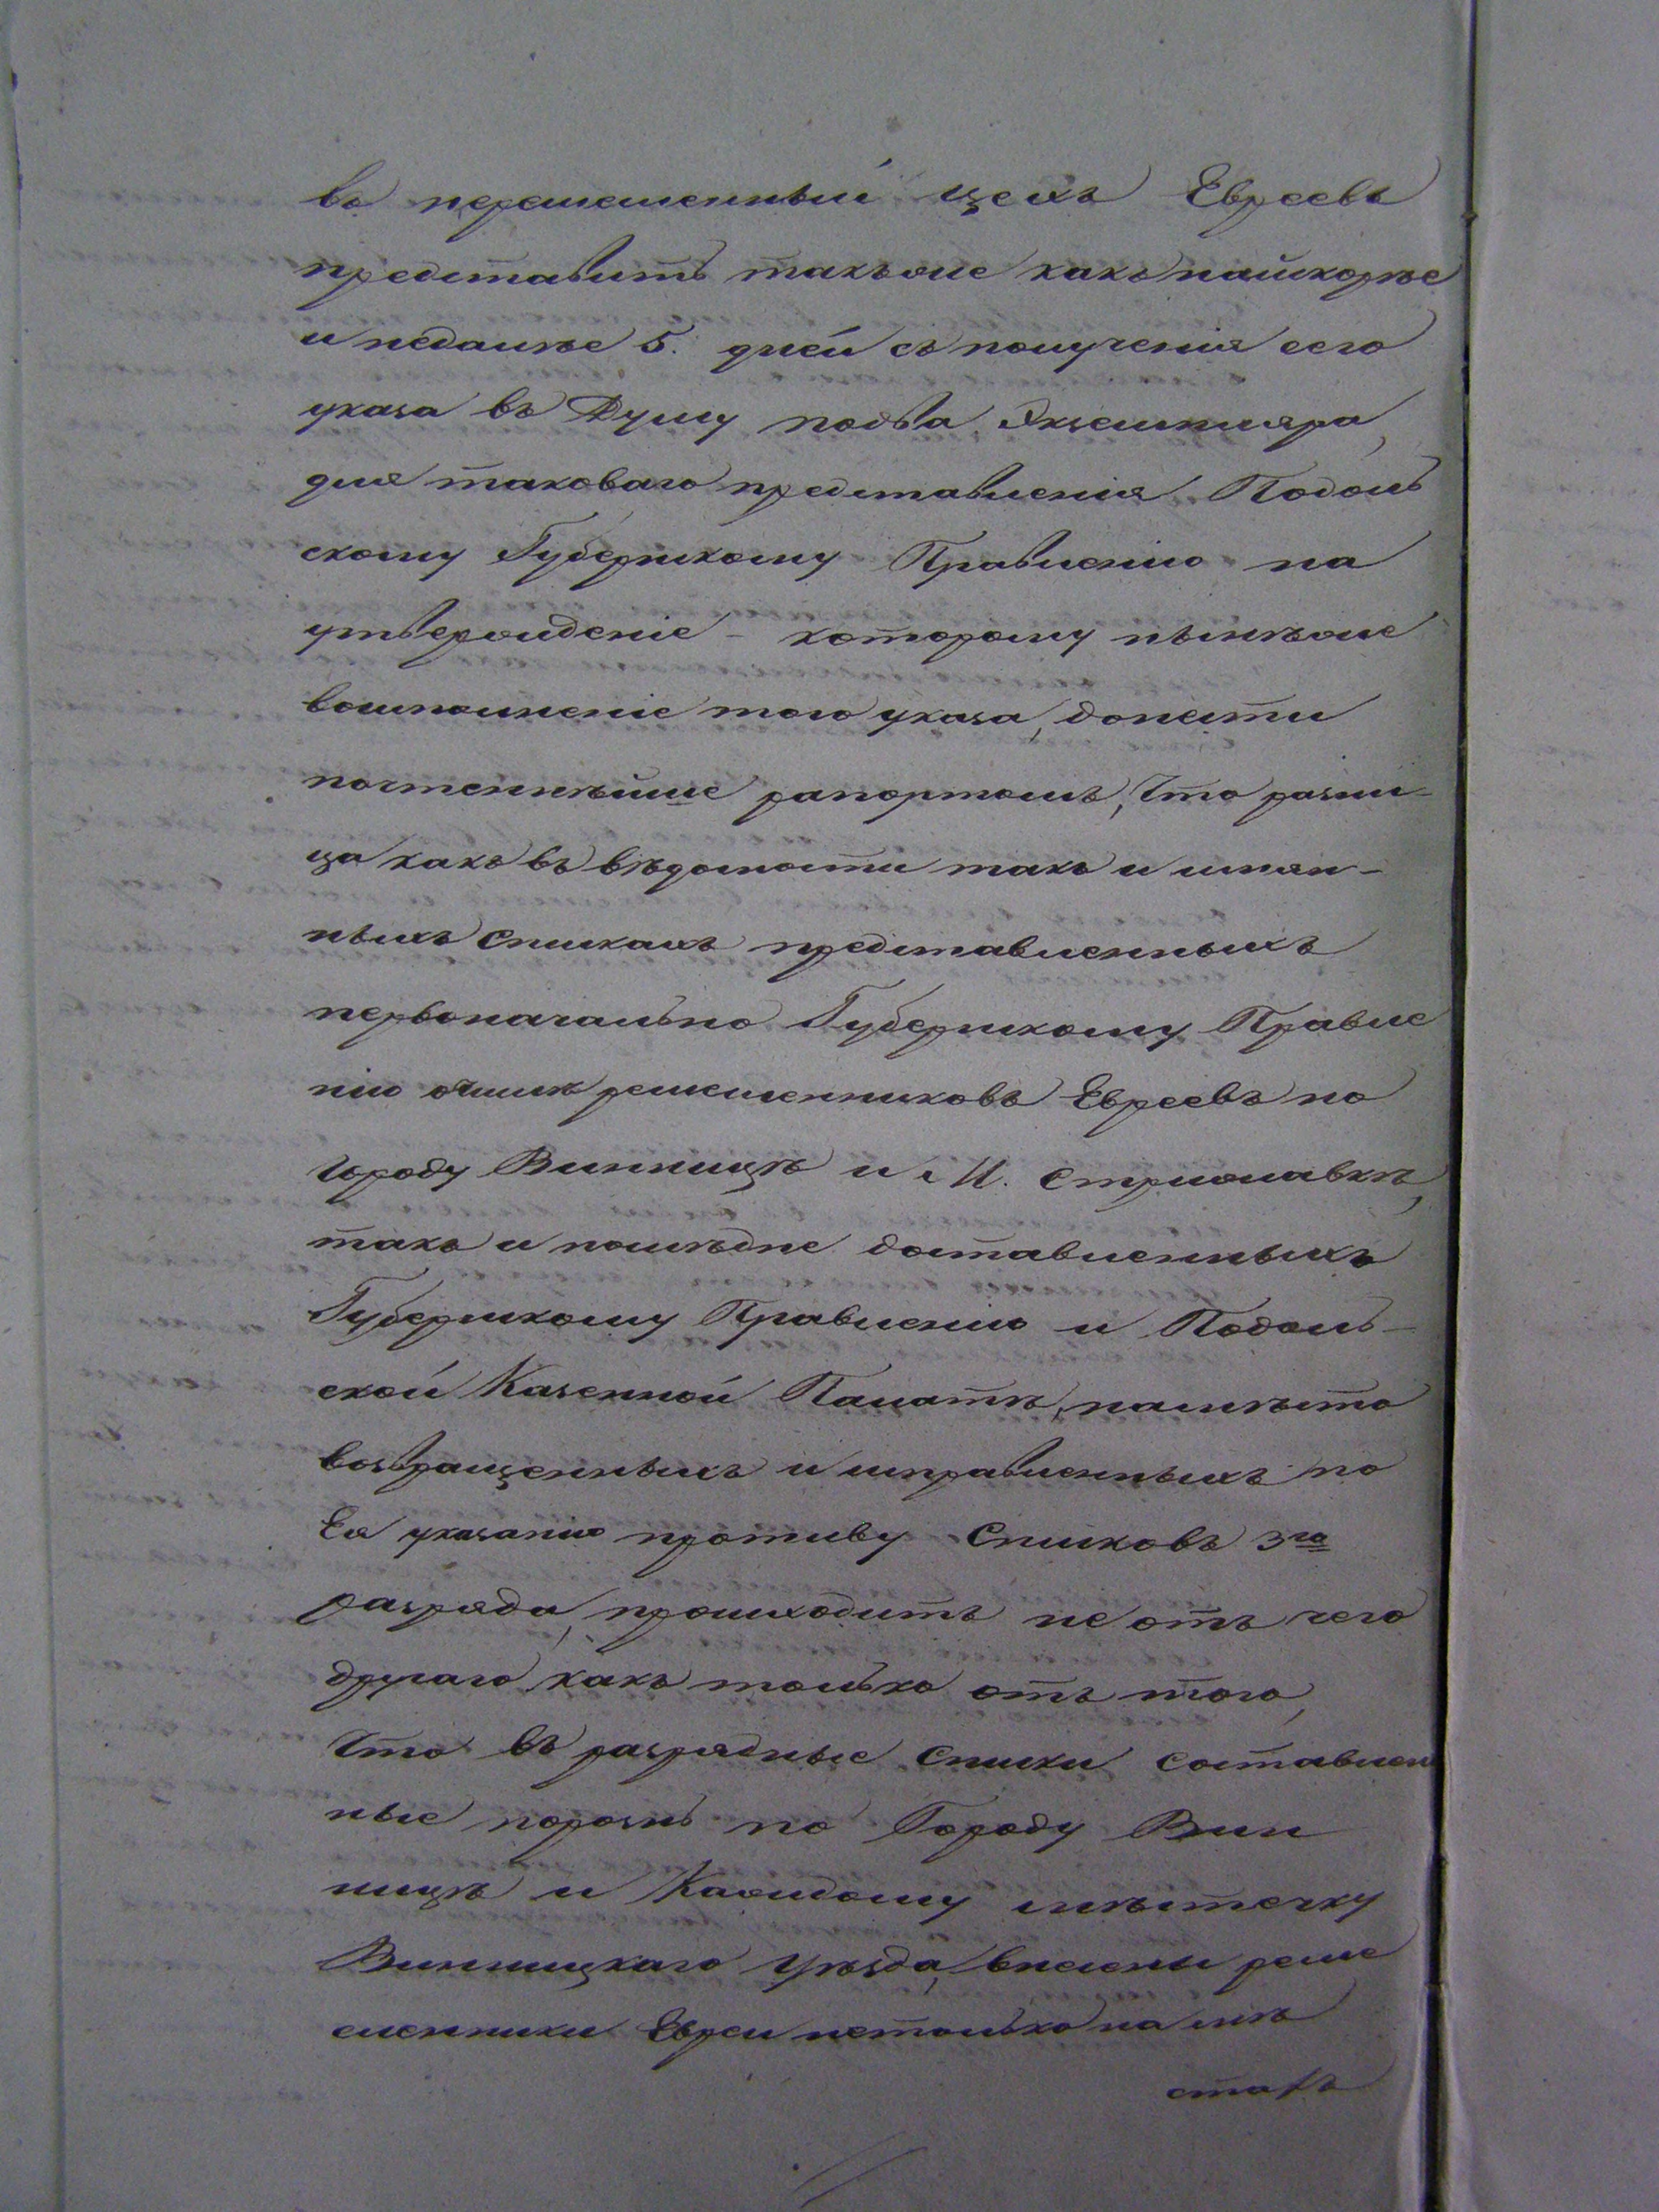 въ перемесленный цехъ Евреевъ
представить такъ же какъ найскорѣе
и недалѣе 5. дней съ полученія сего
указа въ Думу подва Экземпляра,
для таковаго представленія Подоль
скому Губернскому Правленію на
утвержденіе – которому нынѣже
восполненіе того указа, донести
почтеннѣйше рапортомъ, что разни-
ца какъ въ вѣдомости такъ и имян-
ныхъ спискахъ представленныхъ
первоначально Губернскому Правле
нію очислѣ ремесленниковъ Евреевъ по
городу Винницѣ и М. Стрижавкѣ,
такъ и послѣдне доставленныхъ
Губернскому Правленію и Подоль-
ской Казенной Палатѣ, намѣсто
возвращенныхъ и исправленныхъ по
Ея указанію противу Списковъ 3го
разряда, происходитъ не отъ чего
другаго какъ только отъ того,
что въ разрядные списки составлен
ные порознь по Городу Вин
ницѣ и Каждому мѣстечку
Винницкаго Уѣзда, внесены реме
сленники Евреи нетолько на мѣ
стахъ